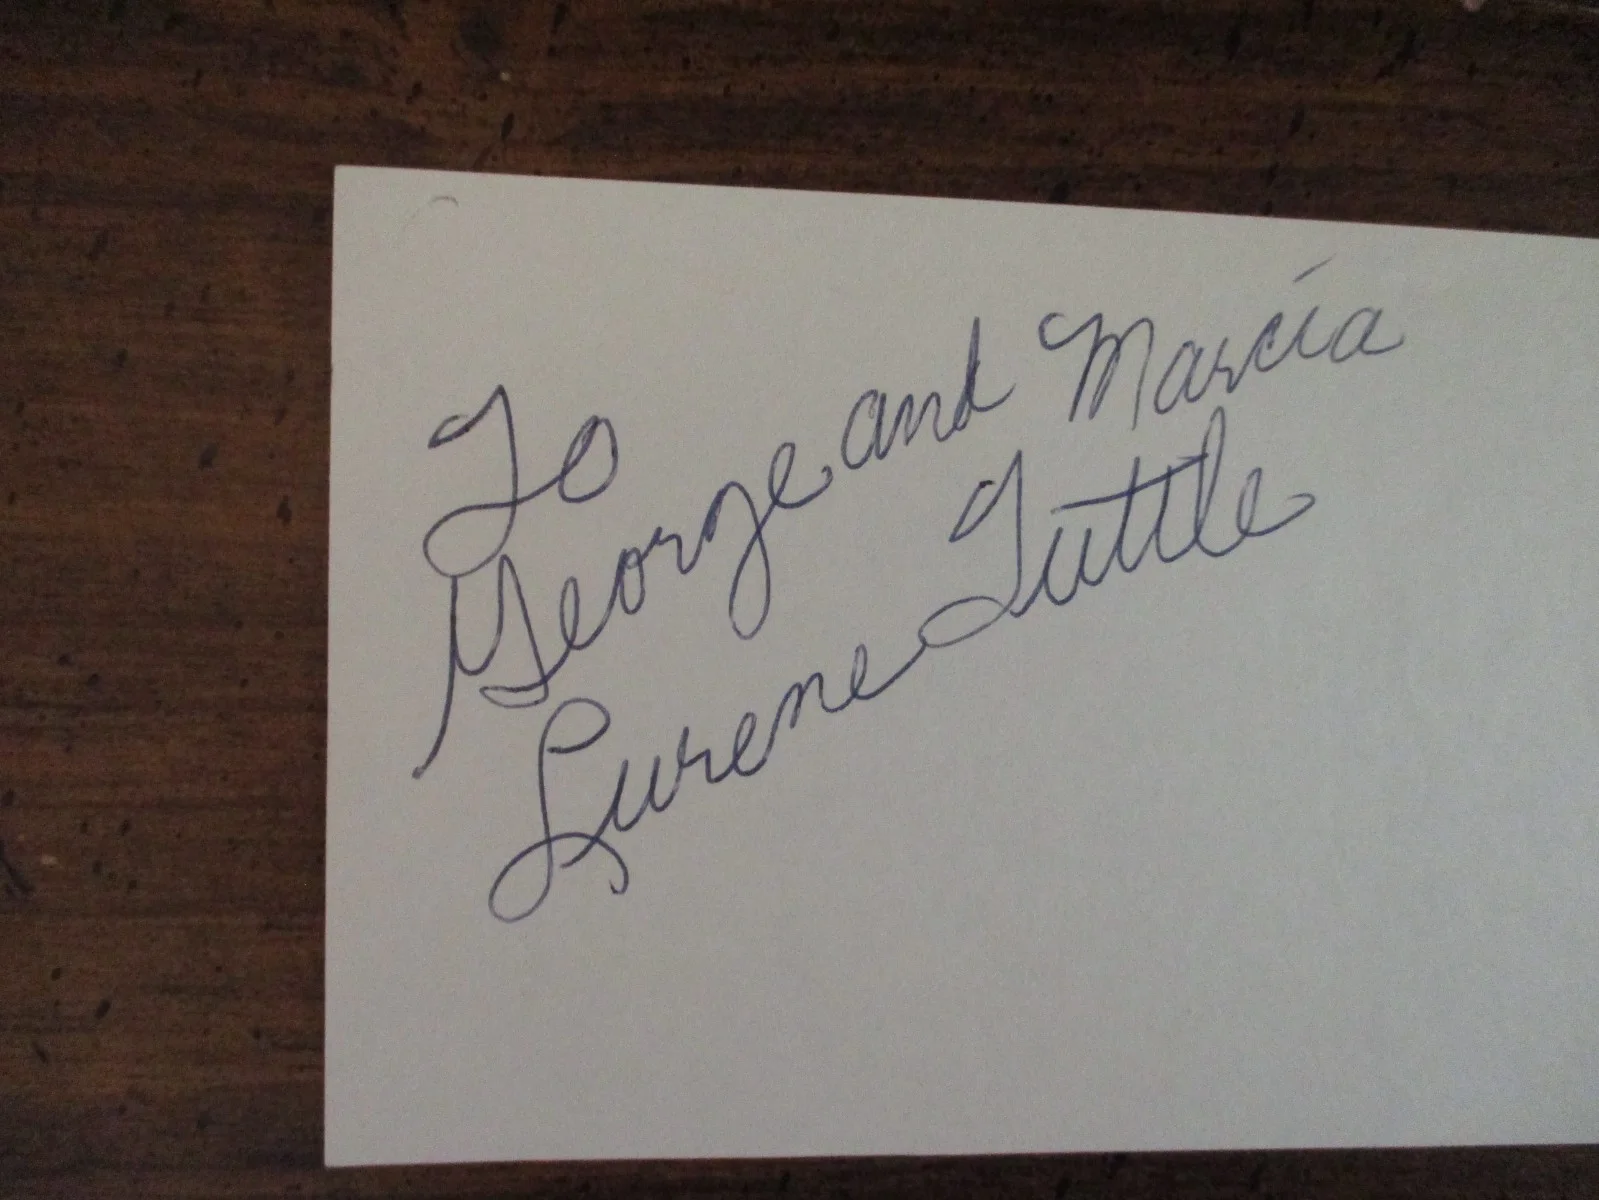 To
George and Marcia
Lurene Tuttle